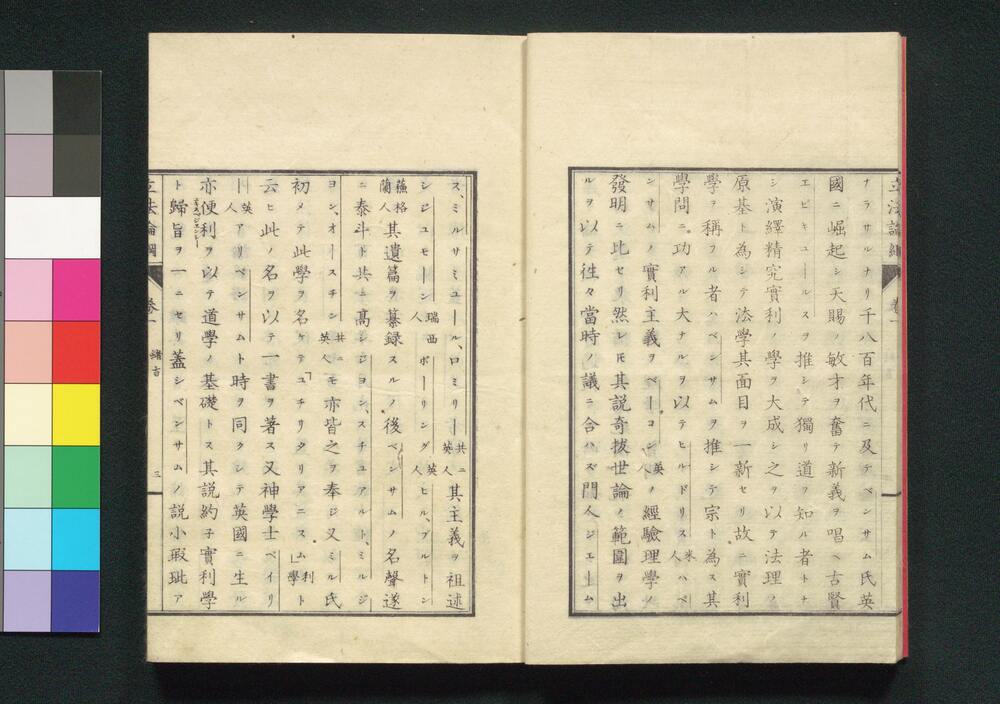 ナラサルナリ千八百年代ニ及テベンサム氏英
國ニ崛起シ天賜ノ敏才ヲ奮テ新義ヲ唱ヘ古賢
エピキユールスヲ推シテ獨リ道ヲ知ル者トナ
シ演繹精究實利ノ學ヲ大成シ之ヲ以テ法理ノ
原基ト為シテ法學其面目ヲ一新セリ故ニ實利
學ヲ稱フル者ハベンサムヲ推シテ宗ト為ス其
學問ニ功アル大ナルヲ以テヒルドリス米人ハベ
ンサムノ實利主義ヲベーコン英人ノ經驗理學ノ
發明ニ比セリ然レ𪜈其説奇拔世論ノ範圍ヲ出
ルヲ以テ徃々當時ノ議ニ合ハズ門人ジエーム
ス、ミルサミユール、ロミリー共ニ英人其主義ヲ祖述
シジユモーン瑞西人ボーリング英人ヒル、ブルトン
蘇格蘭人其遺篇ヲ纂録スルノ後ベンサムノ名聲遂
ニ泰斗ト共ニ高シジヨン、スチユアルト、ミルジ
ヨン、オースチン共ニ英人モ亦皆之ヲ奉ジ又ミル氏
初メテ此學ヲ名ケテ「ユチリタリアニスム」利學ト
云ヒ此ノ名ヲ以テ一書ヲ著ス又神學士ペイリ
ー英人アリベンサムト時ヲ同クシテ英國ニ生ル
亦便利ヲ以テ道學ノ基礎トス其説約子實利學
ト歸旨ヲ一ニセリ蓋シベンサムノ説小瑕玼ア
立法論綱
卷一
緒言
三